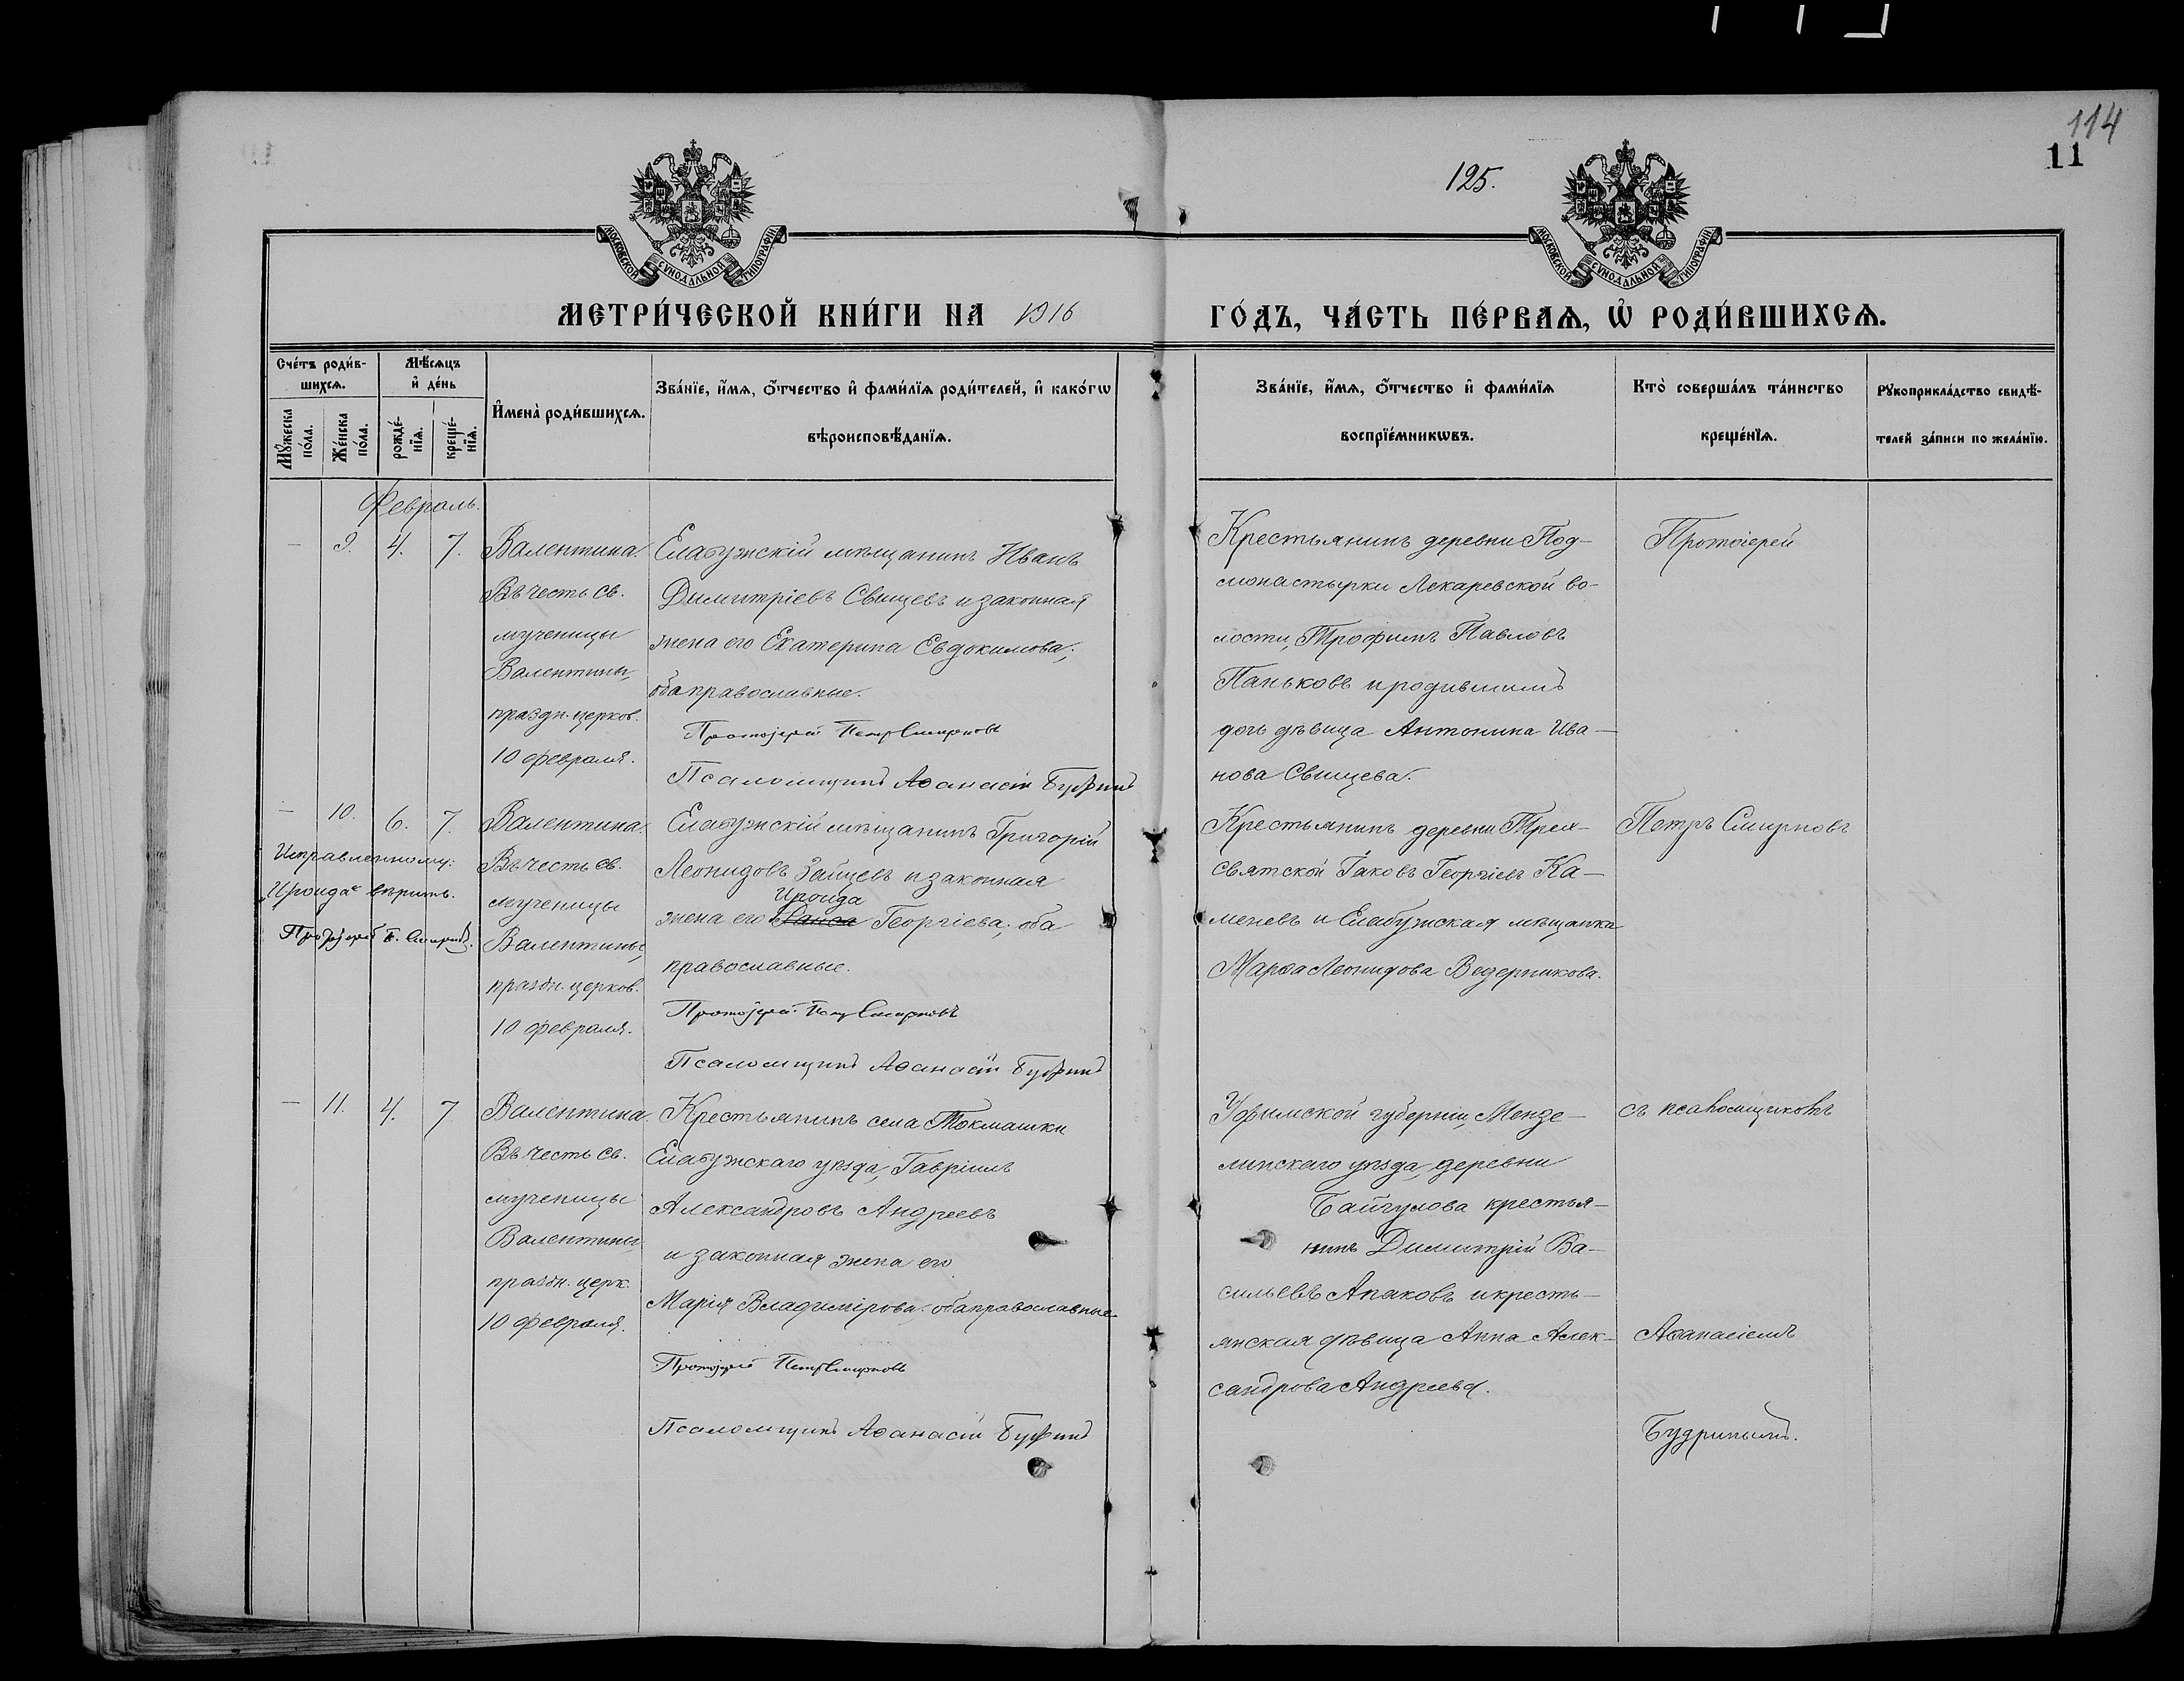 114
11
125.
МОСКОВСКОЙ СѴНОДАЛЬНОЙ ТИПОГРАФІИ
МОСКОВСКОЙ СѴНОДАЛЬНОЙ ТИПОГРАФІИ
МЕТРИ́ЧЕСКОЙ КНИ́ГИ НА 1916
ГО́ДЪ, ЧА́СТЬ ПЕ́РВАѦ, Ѽ РОДИ́ВШИХСѦ.
Сче́тъ роди́в-
шихсѧ.
Мꙋ́жеска
по́ла.
Же́нска
по́ла.
Мѣ́сѧцъ
и҆ де́нь
рожде́-
нїѧ.
креще́-
нїѧ.
И҆мена̀ роди́вшихсѧ.
Зва́нїе, и҆́мѧ, ѻ҆́тчество и҆ фами́лїѧ роди́телей, и҆ како́гѡ
вѣроисповѣ́данїѧ.
Зва́нїе, и҆́мѧ, ѻ҆́тчество и҆ фами́лїѧ
воспрїе́мникѡвъ.
Кто̀ соверша́лъ та́инство
креще́нїѧ.
Рꙋкоприкла́дство свидѣ́-
телей за́писи по жела́нїю.
Февраль.
— 9. 4. 7.
Валентина.
Въ честь св.
мученицы
Валентины,
праздн. церков.
10 февраля.
Елабужскій мѣщанинъ Иванъ
Димитріевъ Свищевъ и законная
жена его Екатерина Евдокимова;
оба православные.
Протоіерей Петръ Смирновъ
Псаломщикъ Аѳанасій Будринъ
Крестьянинъ деревни Под-
монастырки Лекаревской во-
лости, Трофимъ Павловъ
Паньковъ и родившимъ
дочь дѣвица Антонина Ива-
нова Свищева.
Протоіерей
— 10. 6. 7.
Исправленному:
„Ироида“ вѣрить.
Протоіерей П. Смирновъ.
Валентина.
Въ честь св.
мученицы
Валентины,
праздн. церков.
10 февраля.
Елабужскій мѣщанинъ Григорій
Леонидовъ Зайцевъ и законная
Ироида
жена его Георгіева; оба
православные.
Протоіерей Петръ Смирновъ
Псаломщикъ Аѳанасій Будринъ
Крестьянинъ деревни Трех-
святской Іаковъ Георгіевъ Ка-
меневъ и Елабужская мѣщанка
Марѳа Леонидова Ведерникова.
Петръ Смирновъ
— 11. 4. 7
Валентина.
Въ честь св.
мученицы
Валентины,
праздн. церк.
10 февраля.
Крестьянинъ села Токмашки
Елабужскаго уѣзда, Гавріилъ
Александровъ Андреевъ
и законная жена его
Марія Владимірова; оба православные.
Протоіерей Петръ Смирновъ
Псаломщикъ Аѳанасій Будринъ
Уфимской губерніи, Мензе-
линскаго уѣзда, деревни
Байгулова крестья-
нинъ Димитрій Ва-
сильевъ Апаковъ и кресть-
янская дѣвица Анна Алек-
сандрова Андреева.
съ псаломщикомъ
Аѳанасіемъ
Будринымъ.